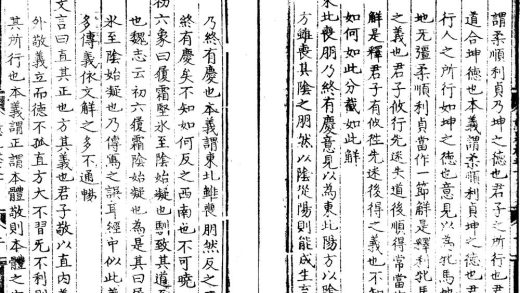 謂柔順利貞乃坤之德也君子之所行
道合坤德也本義謂柔順利貞坤之德也
行人之所行如坤之德也意見以為牝馬地
地无彊柔順利貞當作一節解是釋利牝馬
之義也君子攸行先迷失道後順得常當
解是釋君子有攸徃先迷後得之義也不知
如何如此分截如此解
東北喪朋乃終有慶意見以為東北陽方以陰
方雖喪其陰之朋然以陰從陽則能成生
乃終有慶也本義謂東北雖喪朋然反之
終有慶矣不知如何反之西南也不可曉
初六象曰履霜堅氷至陰始凝也馴致其道至
也魏志云初六履霜陰始凝也為是其曰
氷至陰始凝也乃傳寫之誤耳經中似此
多傳義依文解之多不通暢
文言曰直其正也方其義也君子敬以直内義
外敬義立而德不孤直方大不習无不利則
其所行也本義謂正謂本體敬則本體之